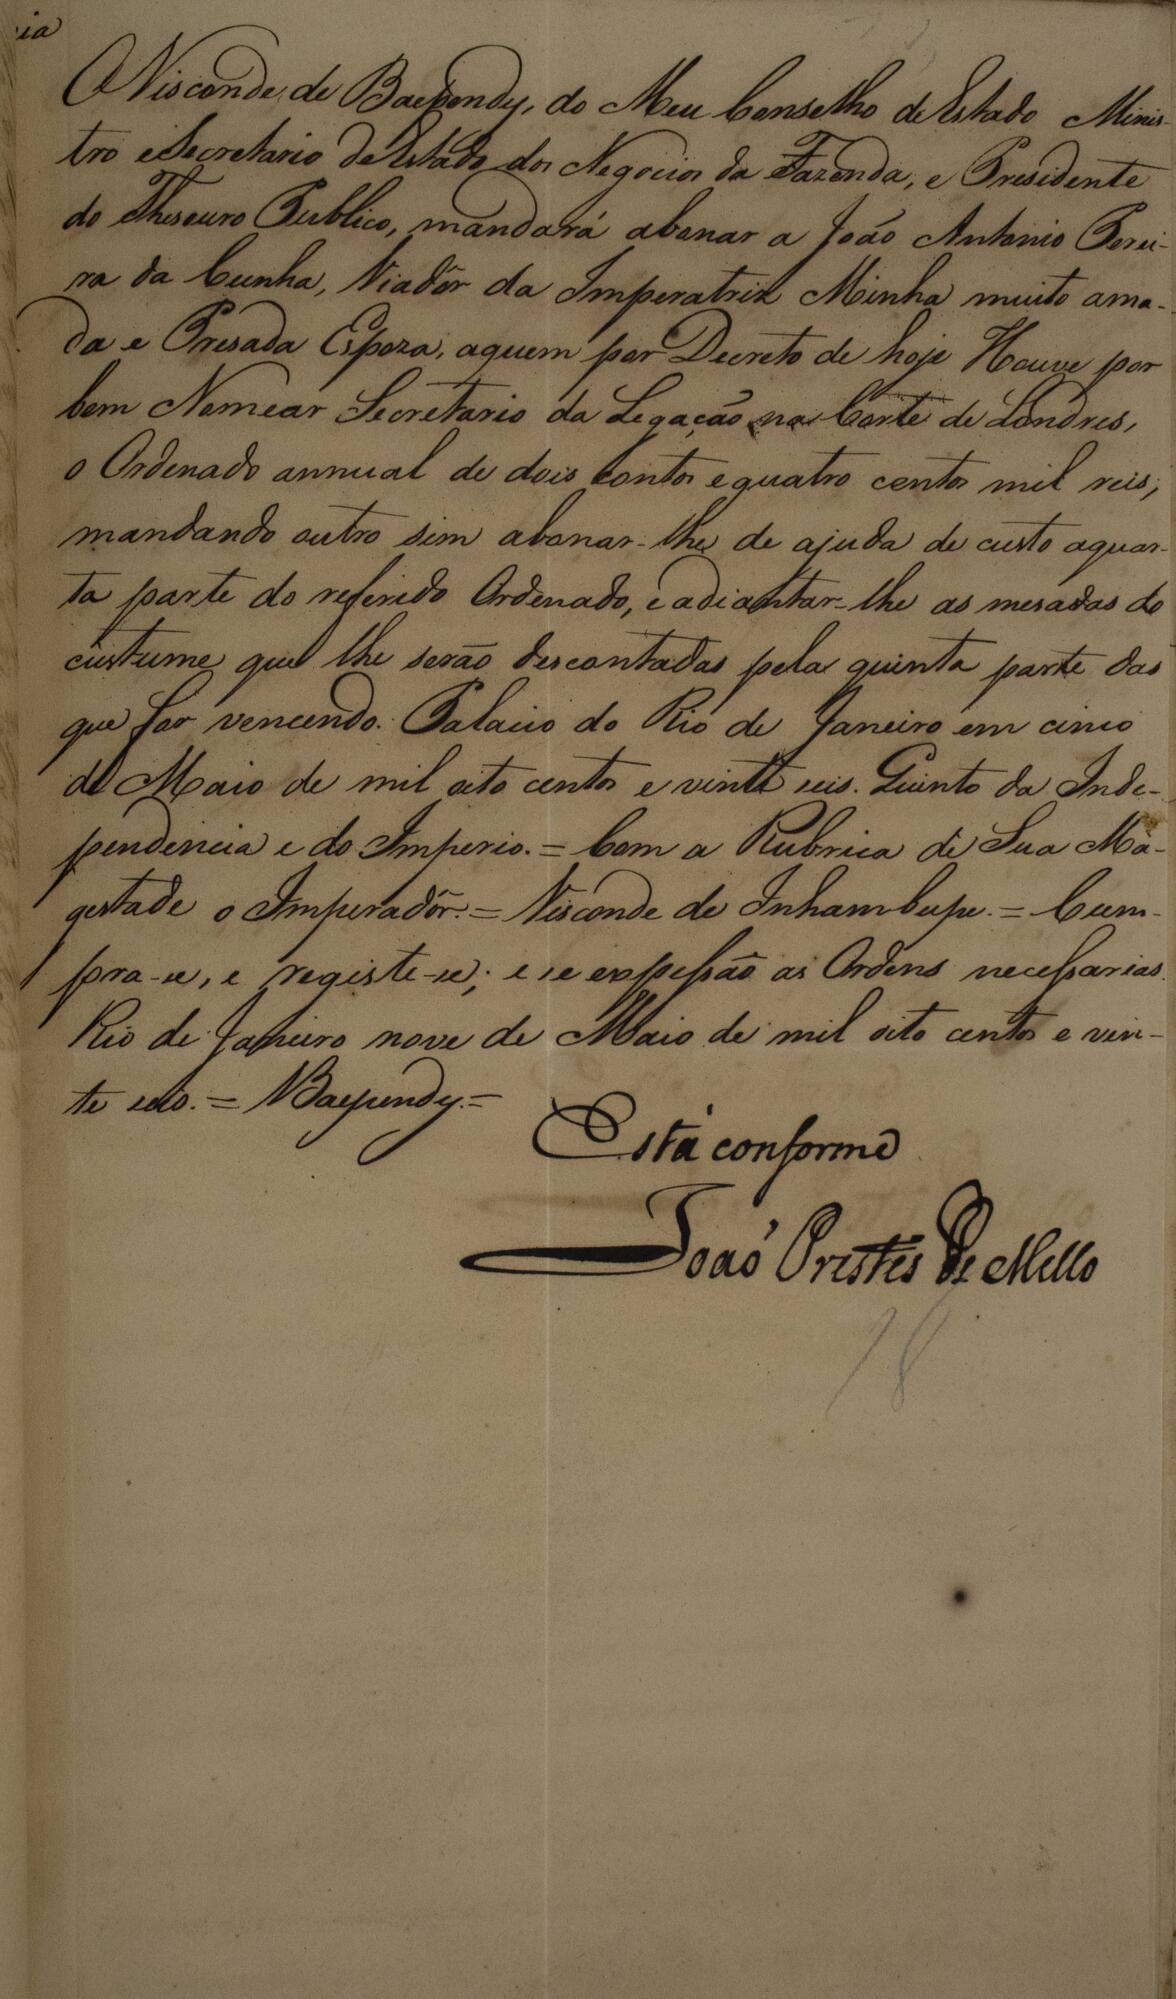 ia
O Visconde de Baependy, do Meu Conselho de Estado Minis-
tro e Secretario de Estado dos Negocios da Fazenda, e Presidente
do Thesouro Publico, mandará abonar a João Antonio Perei-
ra da Cunha, Viadôr da Imperatriz Minha muito ama-
da e Presada Espoza, aquem por Decreto de hoje Houve por
bem Nomear Secretario da Legação na Corte de Londres,
o Ordenado annual de dois contos e quatro centos mil reis;
mandando outro sim abonar-lhe de ajuda de custo aquar-
ta parte do referido Ordenado, e adiantar-lhe as mesadas do
custume, que lhe serão descontadas pela quinta parte das
que for vencendo. Palacio do Rio de Janeiro em cinco
de Maio de mil oito centos e vinte seis. Quinto da Inde-
pendencia e do Imperio. = Com a Rubrica de Sua Ma-
gestade o Imperadôr. = Visconde de Inhambupe. = Cum-
pra-se, e registe-se; e se expessão as Ordens necessarias.
Rio de Janeiro nove de Maio de mil oito centos e vin-
te seis. = Baependy. =
Está conforme
João Prestes de Mello
18